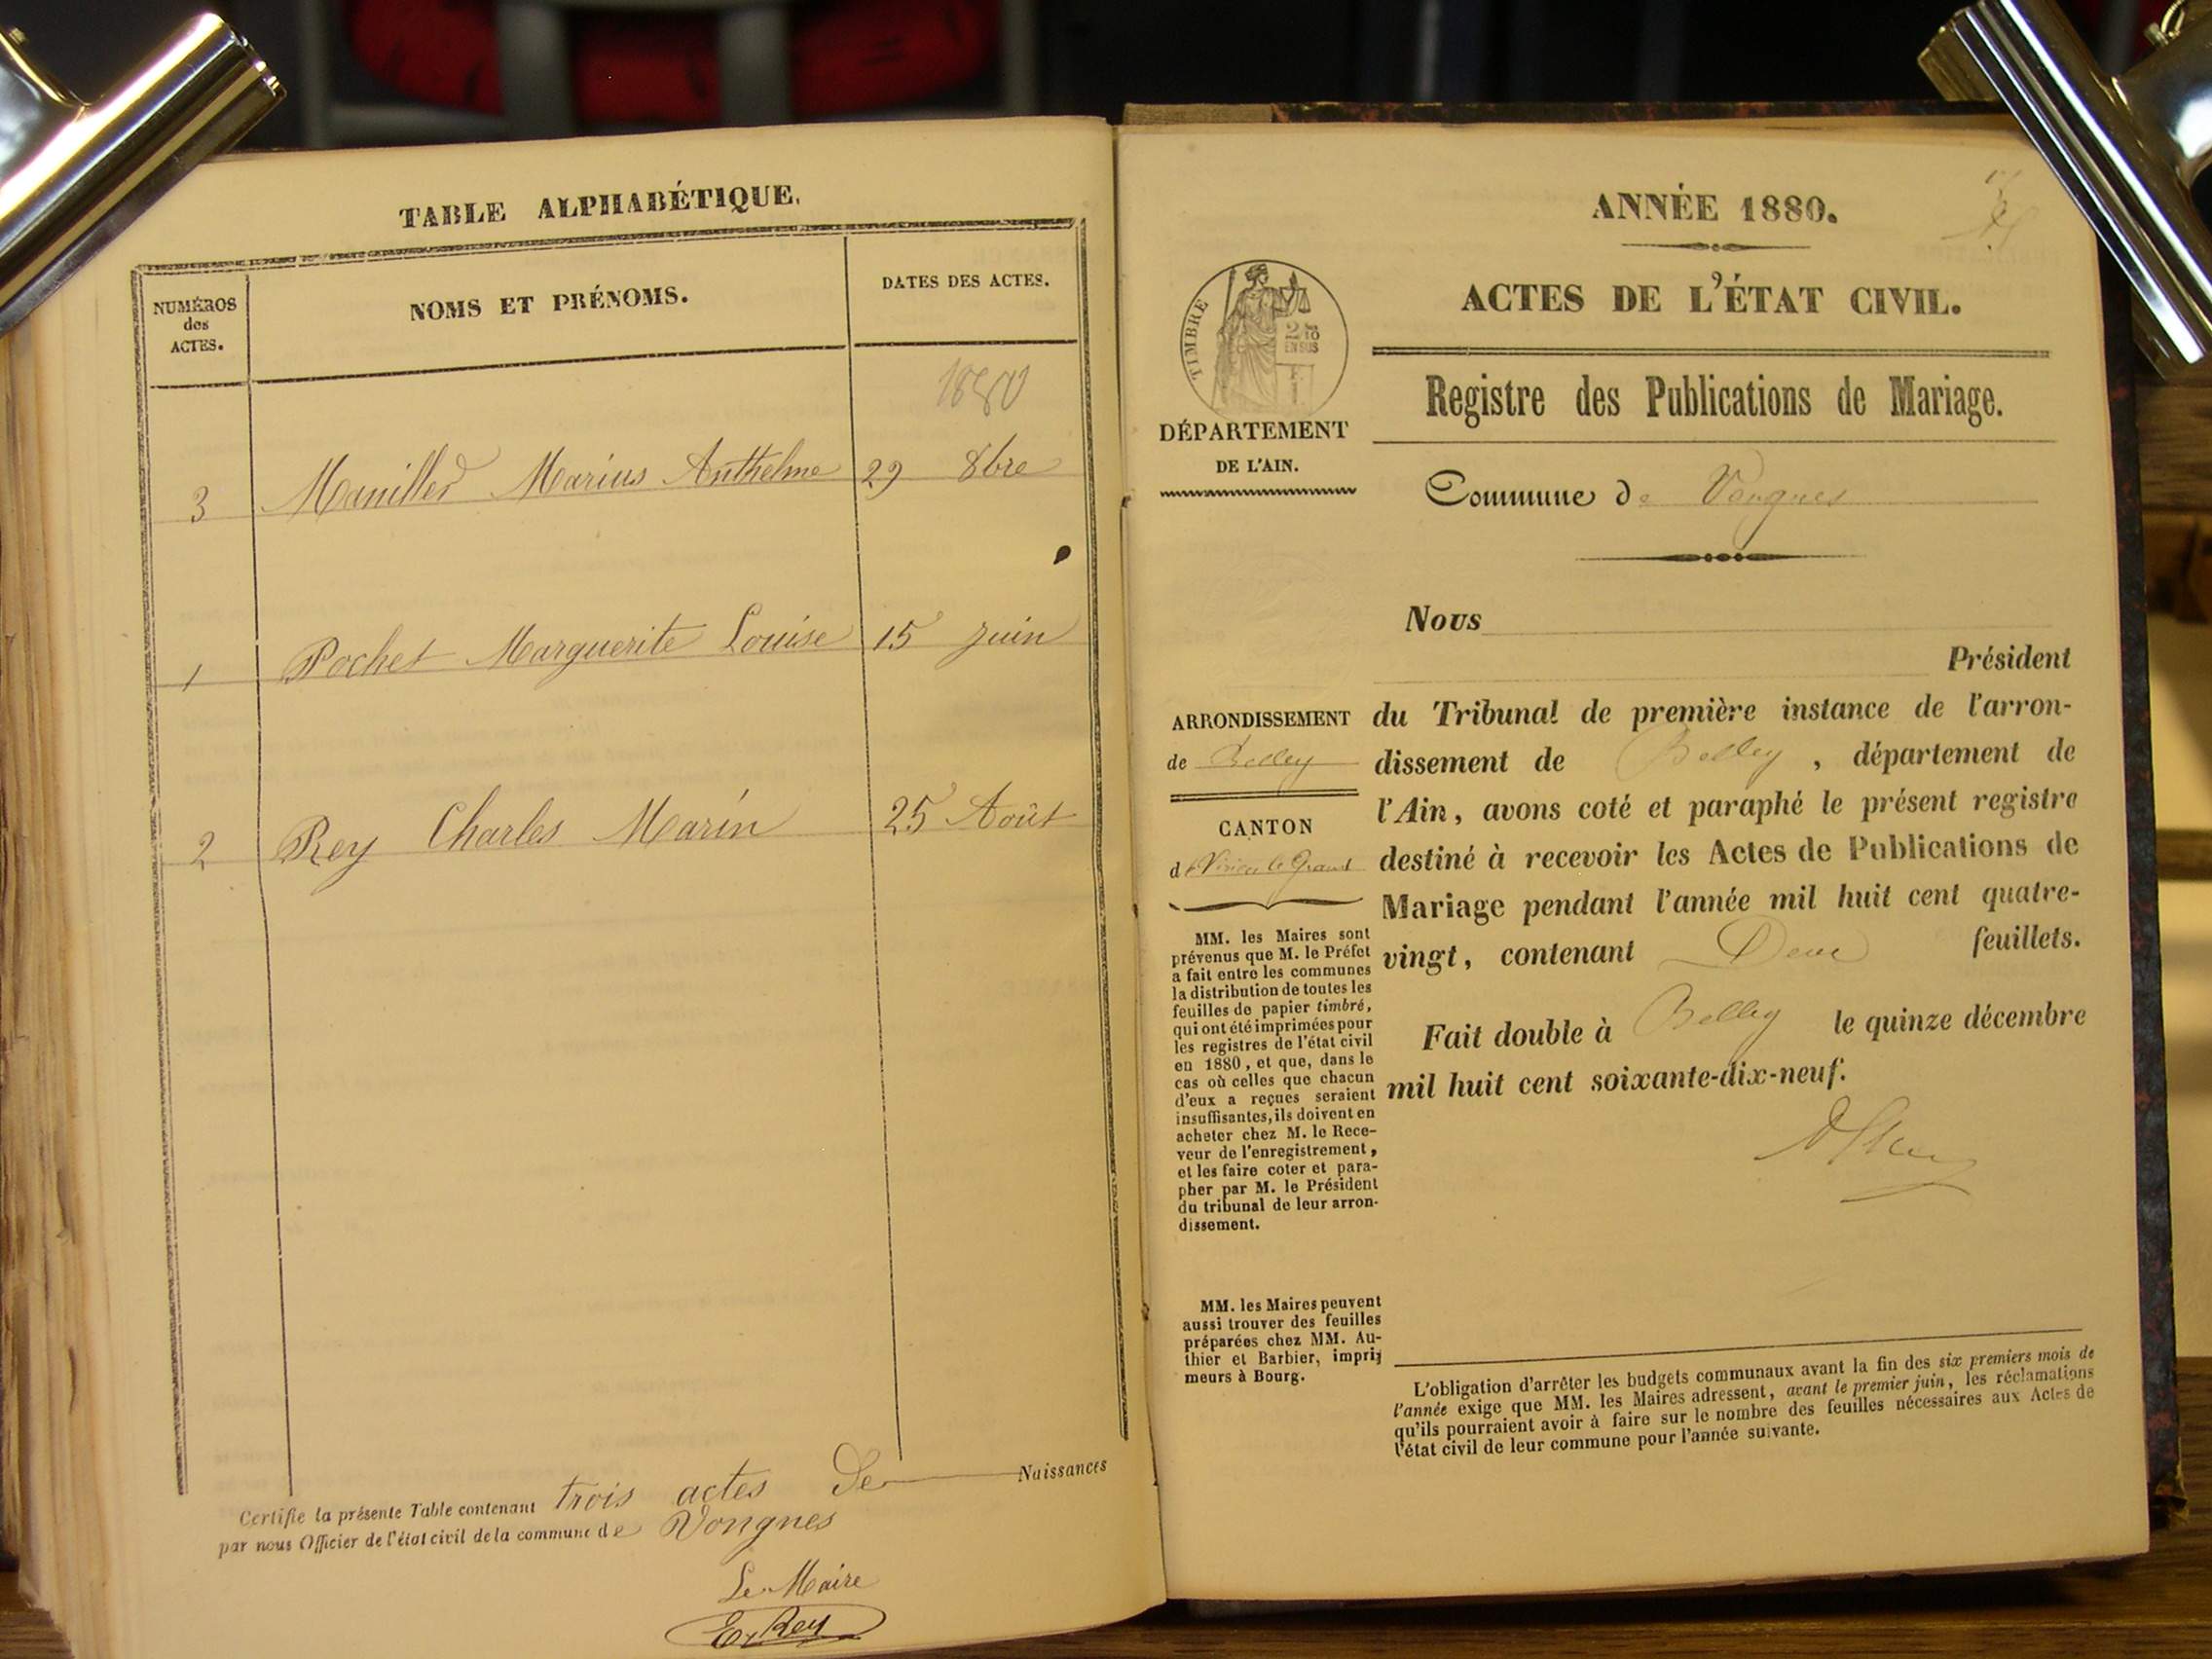 TABLE ALPHABÉTIQUE.
NUMÉROS
des
ACTES.
NOMS ET PRÉNOMS.
DATES DES ACTES.
1880
3 Manillier Marius Anthelme 29 8bre
1 Pochet Marguerite Louise 15 Juin
2 Rey Charles Marin 25 Août
Certifie la présente Table contenant trois actes De Naissances
par nous Officier de l'état civil de la commune de Vongnes
Le Maire
Rey
ANNÉE 1880.
ACTES DE L'ÉTAT CIVIL.
TIMBRE
EN SUS
Registre des Publications de Mariage.
DÉPARTEMENT
DE L'AIN.
Commune de Vongnes
Nous
Président
ARRONDISSEMENT
de Belley
CANTON
de Virieu le Grand
du Tribunal de première instance de l'arron-
dissement de Belley, département de
l'Ain, avons coté et paraphé le présent registre
destiné à recevoir les Actes de Publications de
Mariage pendant l'année mil huit cent quatre-
vingt, contenant Deux feuillets.
Fait double à Belley le quinze décembre
mil huit cent soixante-dix-neuf.
MM. les Maires sont
prévenus que M. le Préfet
a fait entre les communes
la distribution de toutes les
feuilles de papier timbré,
qui ont été imprimées pour
les registres de l'état civil
en 1880, et que, dans le
cas où celles que chacun
d'eux a reçues seraient
insuffisantes, ils doivent en
acheter chez M. le Rece-
veur de l'enregistrement,
et les faire coter et para-
pher par M. le Président
du tribunal de leur arron-
dissement.
MM. les Maires peuvent
aussi trouver des feuilles
préparées chez MM. Au-
thier et Barbier, impri-
meurs à Bourg.
L'obligation d'arrêter les budgets communaux avant la fin des six premiers mois de
l'année exige que MM. les Maires adressent, avant le premier juin, les réclamations
qu'ils pourraient avoir à faire sur le nombre des feuilles nécessaires aux Actes de
l'état civil de leur commune pour l'année suivante.